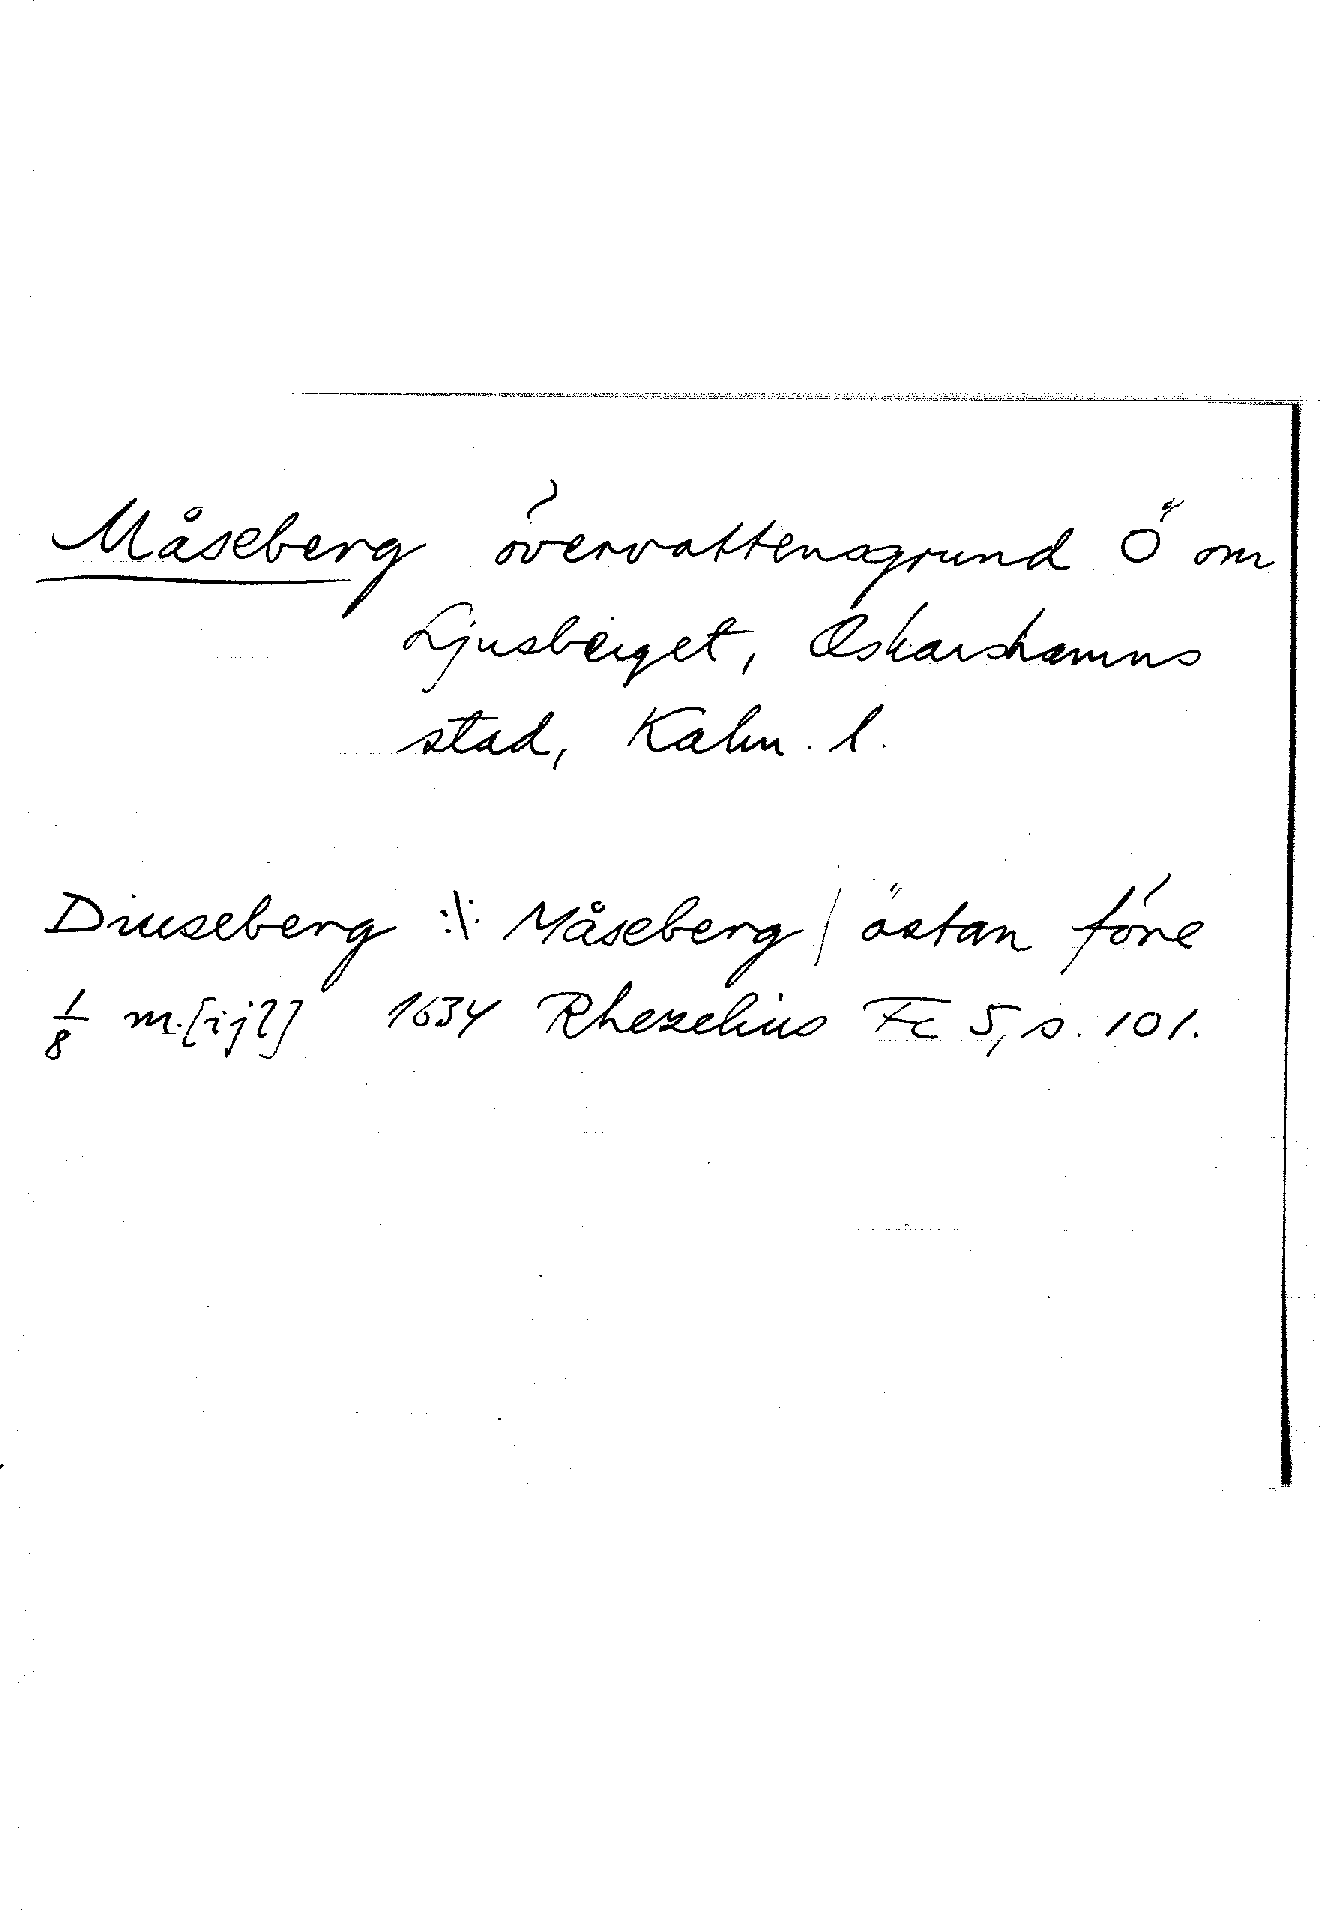 Måseberg övervattensgrund Ö om
Ljusberget, Oskarshamns
stad, Kalm. l.
Diuseberg :/: Måseberg / östan före
1/8 m.[ijl] 1634 Rhezelius Fc 5, s. 101.